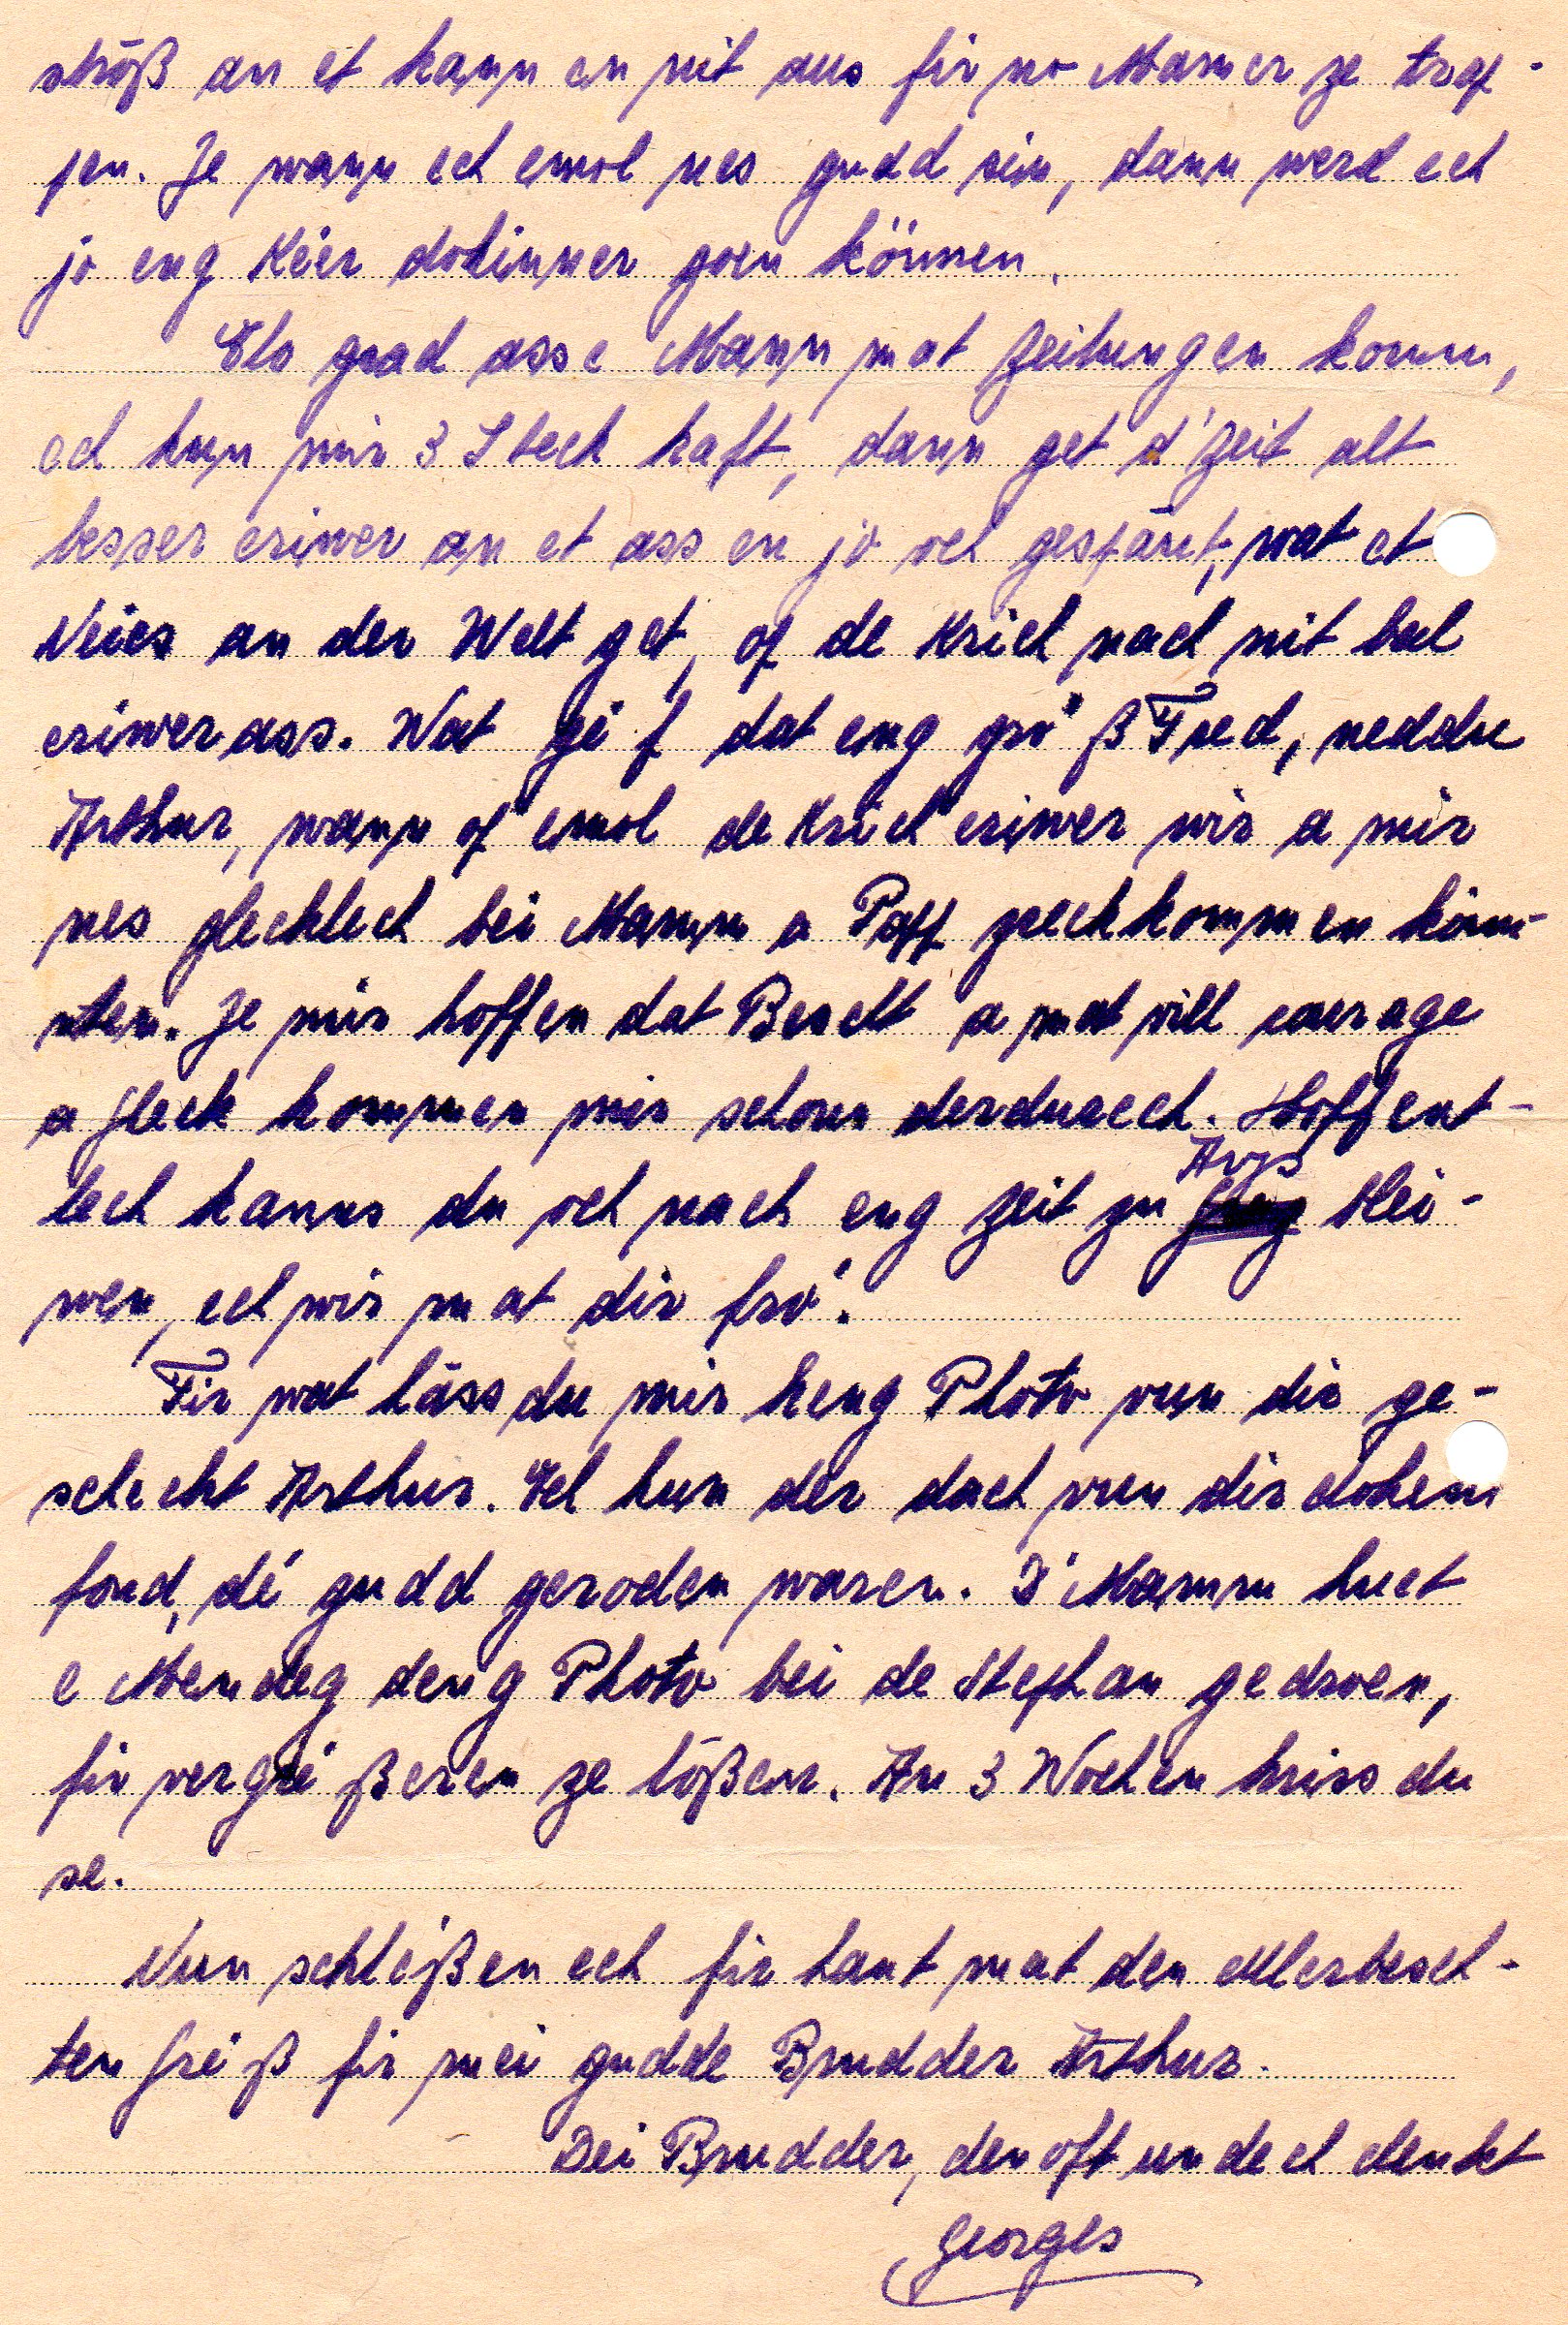 ströß an et kann en nit aus fir no Mamer ze trap-
pen. Je wann ech emol nes gudd sin, dann werd ech
jo eng Kéier dohinner goen können.
Elo grad ass e Mann mat Zeitungen komm,
ech hun mir 3 Steck kaft, dann get d'Zeit alt
besser eriwer an et ass en jo och gespãnt, wat et
Neies an der Welt get, of de Krich nach nit bal
eriwer ass. Wat gé f dat eng gro' ß Fred, neddu
Arthur, wann of emol de Krich eriwer wir a mir
nes glecklech bei Mamm a Papp zreckkommen könn-
nten. Je mir hoffen dat Bescht a mat vill courage
a Gleck kommen mir schons derduerch. Hoffent-
lech kanns du och nach eng Zeit zu Arys blei-
wen, ech wir mat dir fro'.
Fir wat häss du mir keng Photo vun dir ge-
schecht Arthur. Ech hun der dach vun dir dohem
fond, dé gudd geroden waren. D'Mamm huet
e Mendeg deng Photo bei de Stephan gedroen,
fir vergréißeren ze lößen. An 3 Wochen kriss du
se.
Nun schléißen ech fir haut mat den Allerbesch-
ten Gréiß fir mei gudde Brudder Arthur.
Dei Brudder, den oft un dech denkt
Georges